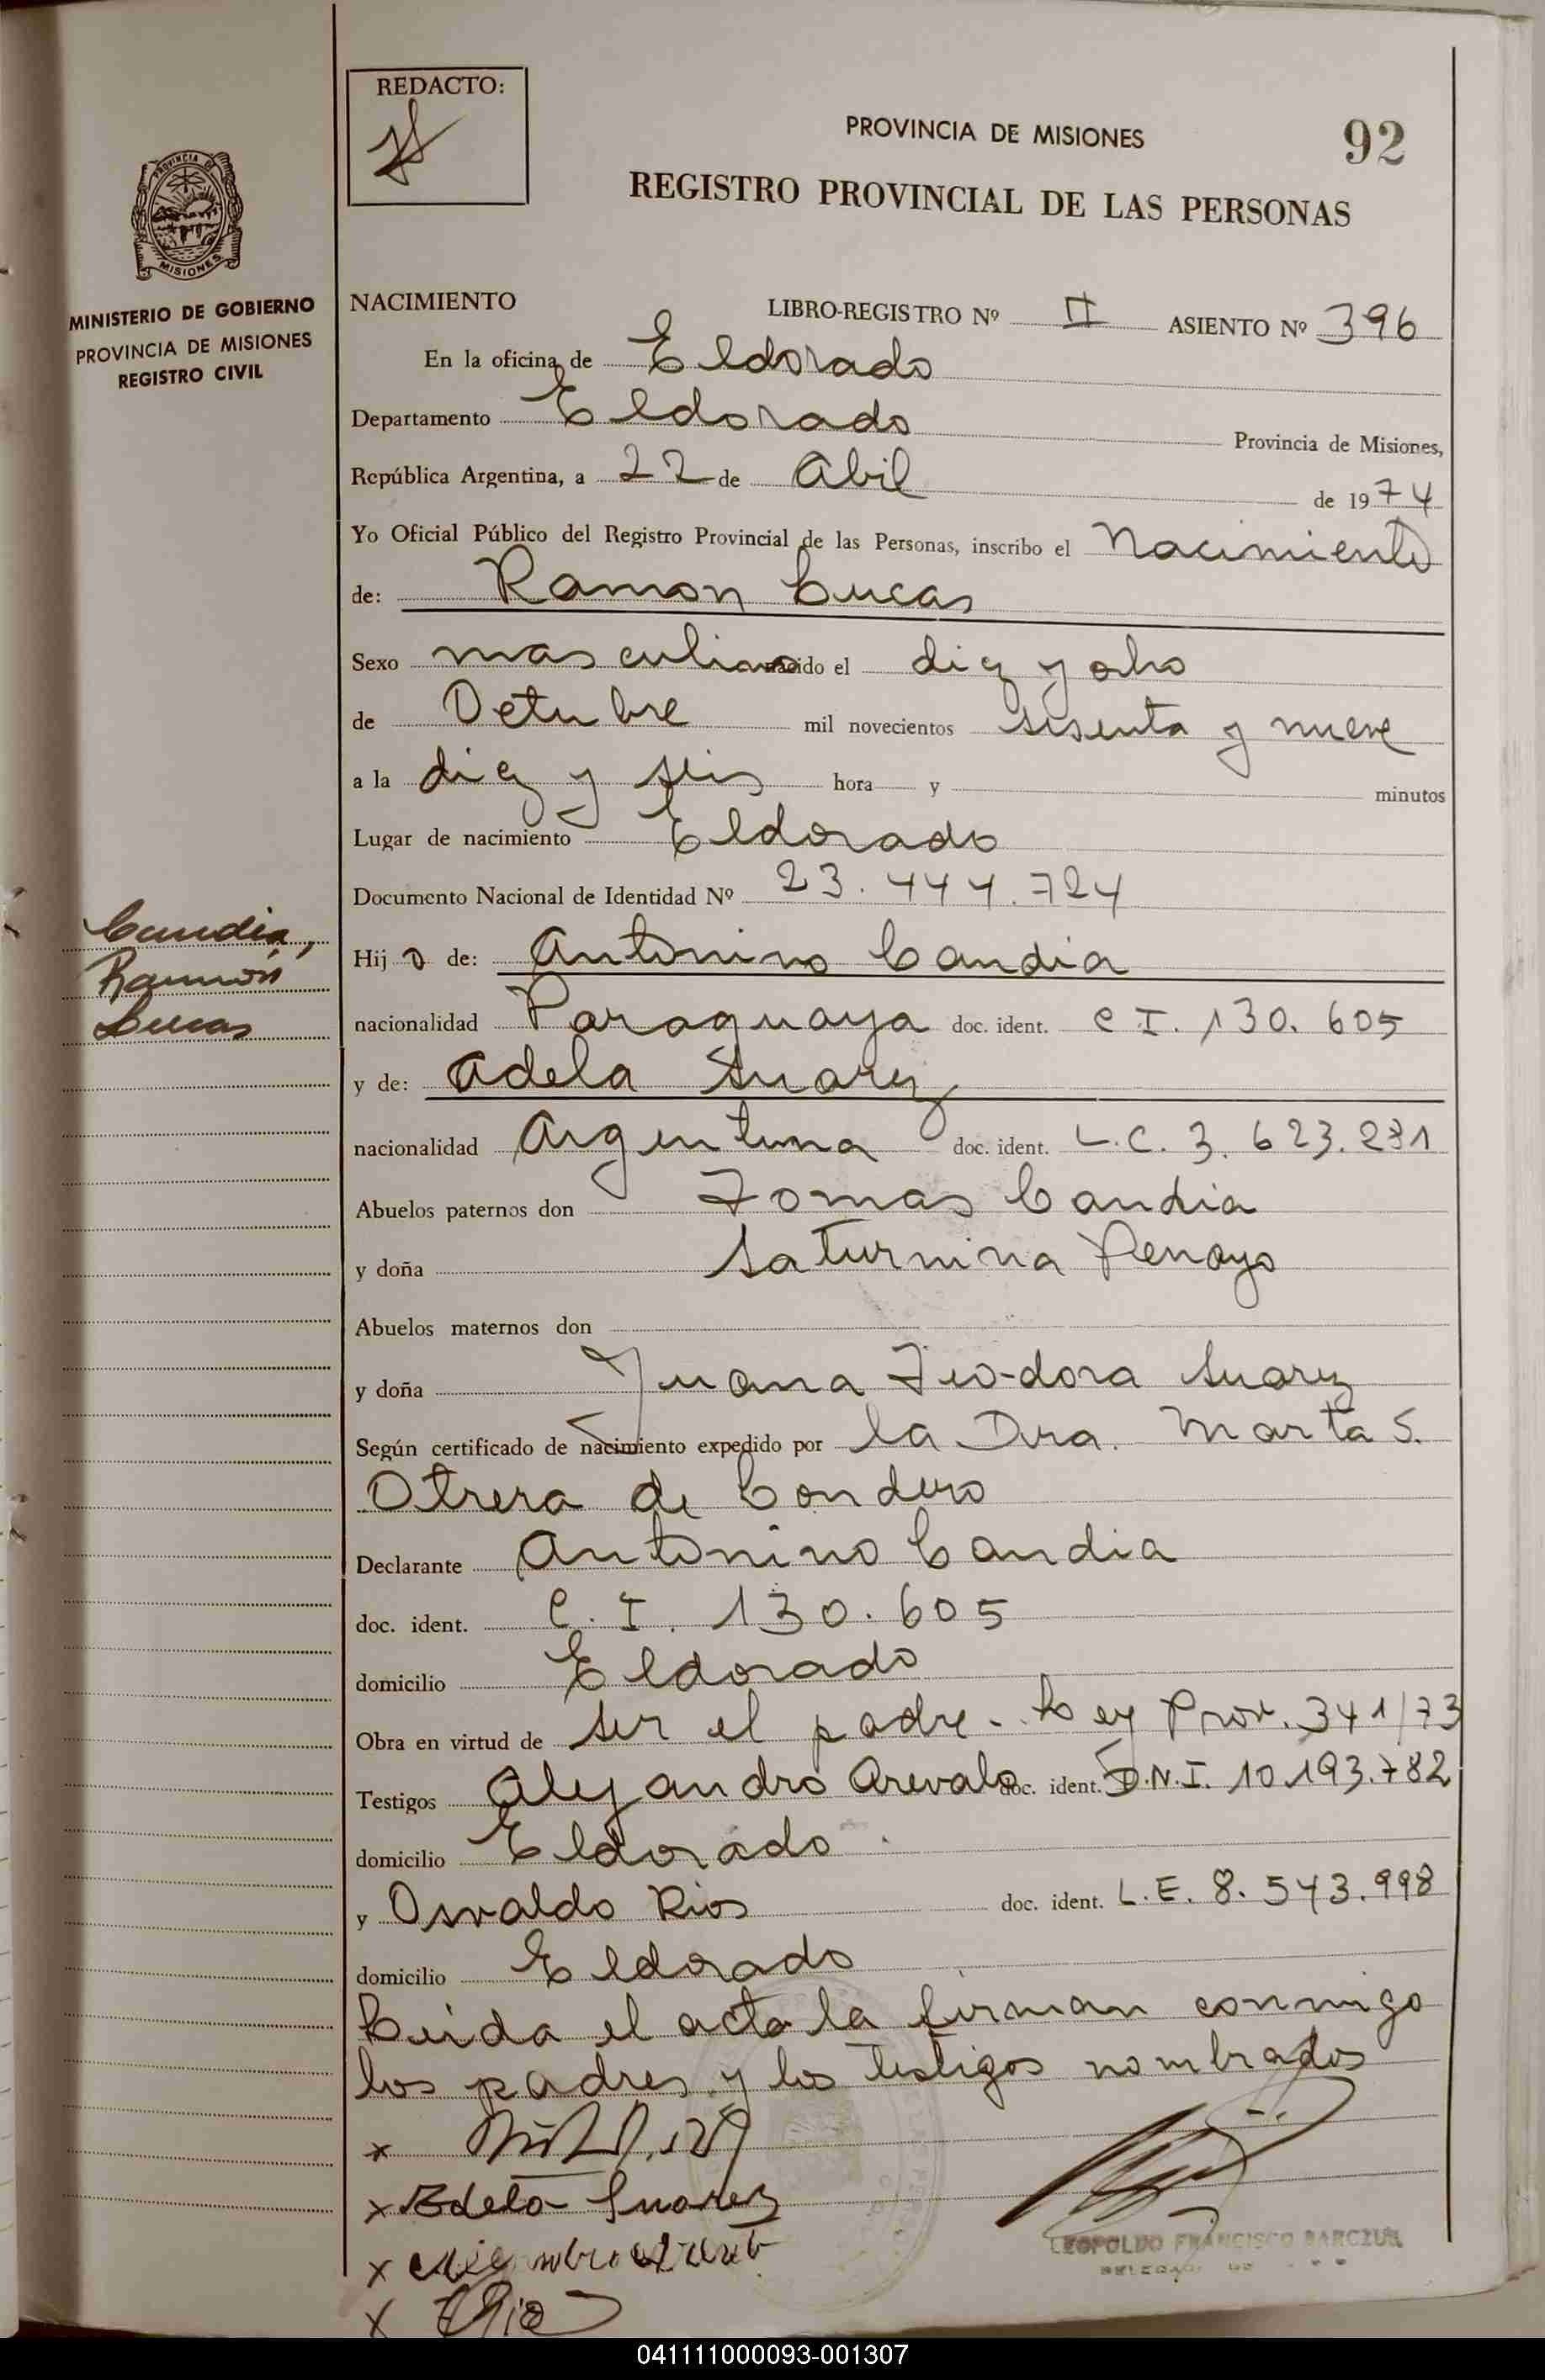 REDACTO:
PROVINCIA DE MISIONES
92
REGISTRO PROVINCIAL DE LAS PERSONAS
PROVINCIA DE
MISIONES
MINISTERIO DE GOBIERNO
PROVINCIA DE MISIONES
REGISTRO CIVIL
NACIMIENTO LIBRO-REGISTRO Nº II ASIENTO Nº 396
En la oficina de Eldorado
Departamento Eldorado Provincia de Misiones,
República Argentina, a 22 de Abil de 1974
Yo Oficial Público del Registro Provincial de las Personas, inscribo el Nacimiento
de: Ramon Lucas
Sexo masculino nacido el diez y ocho
de Octubre mil novecientos sesenta y nueve
a la diez y seis hora y minutos
Lugar de nacimiento Eldorado
Documento Nacional de Identidad Nº 23.444.724
Candia,
Ramón
Lucas
Hijo de: Antonino Candia
nacionalidad Paraguaya doc. ident. C I. 130.605
y de: Adela Suarez
nacionalidad Argentina doc. ident. L.C. 3.623.231
Abuelos paternos don Tomas Candia
y doña Saturnina Penayo
Abuelos maternos don
y doña Juana Teodora Suarez
Según certificado de nacimiento expedido por la Dra. Marta S.
Otrera de Cordero
Declarante Antonino Candia
doc. ident. C.I. 130.605
domicilio Eldorado
Obra en virtud de ser el padre - Ley Prov. 341/73
Testigos Alejandro Arevalo doc. ident. D.N.I. 10.193.782
domicilio Eldorado
y Osvaldo Rios doc. ident. L.E. 8.543.998
domicilio Eldorado
Leida el acta la firman conmigo
los padres y los testigos nombrados
x
x Adela Suarez
x
x
LEOPOLDO FRANCISCO
041111000093-001307